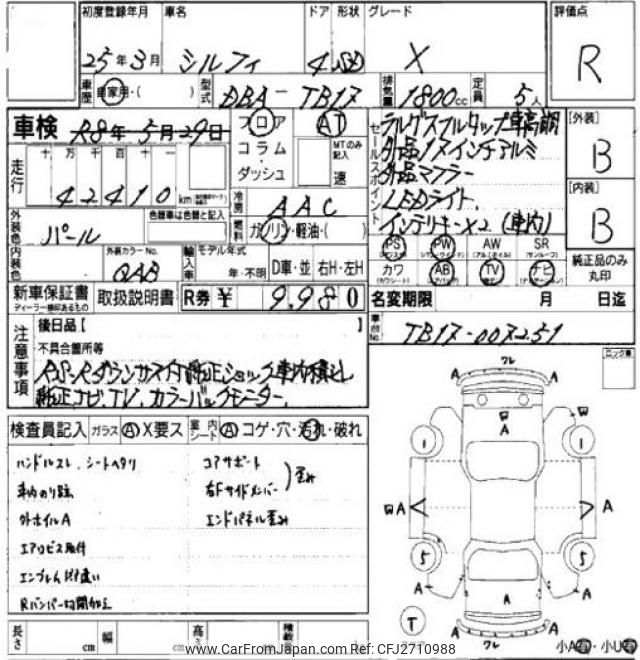 初度登録年月 車名 ドア 形状 グレード 評価点
25年3月 シルフィ 4 SD X R
車歴 自家用・( ) 型式 DBA-TB17 排気量 1800cc 定員 5人
車検 R8年5月29日 フロア AT セールスポイント
コラム MTのみ記入
ダッシュ 速
走行 十 万 千 百 十 一
42410 km
外品17インチアルミ
外品マフラー
LEDライト
インテリキー×2 (車内)
[外装] B
[内装] B
冷房 AAC
外装色 パール 色替車は色替と記入 燃料 ガソリン・軽油・( )
内装色 外装カラーNo. QAB 輸入車 モデル年式 年・不明 D車・並 右H・左H
PS PW AW SR
カワ AB TV ナビ
純正品のみ丸印
新車保証書 取扱説明書 R券 ¥ 9,980
ディーラー捺印あるもの
名変期限 月 日迄
車台No. TB17-007251
注意事項 後日品【 】
不具合箇所等
純正ナビ、TV、カラーバックモニター、
ロック車
検査員記入 ガラス A X要ス 室内シート A コゲ・穴・汚れ・破れ
ハンドルスレ、シートヘタリ コアサポート
車内のり跡 右Fサイドメンバー 歪み
外ホイルA エンドパネル歪み
エアロビス取付
エンブレム
Rバンパー切開加工
ワレ A A
W A W
1 1
WA A
5 5
A A A
T
A ワレ A
長さ cm 幅 cm 高さ cm 積載
小A有・小U有
www.CarFromJapan.com Ref: CFJ2710988